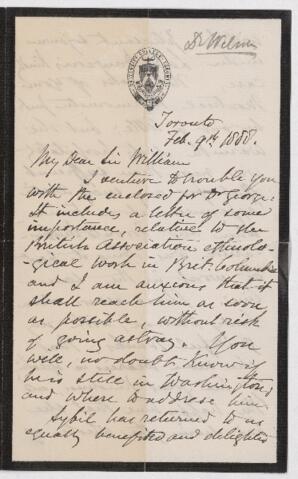 Dr Wilson
Toronto
Feb. 9th 1888.
My Dear Sir William
I venture to trouble you
with the enclosed for Dr George.
It includes a letter of some
importance, relative to the
British Association ethnolo-
gical work in Brit. Columbia
and I am anxious that it
shall reach him as soon
as possible, without risk
of going astray. You
will, no doubt know if
he is still in Washington,
and where to address him
Sybil has returned to us
equally benefited and delighted